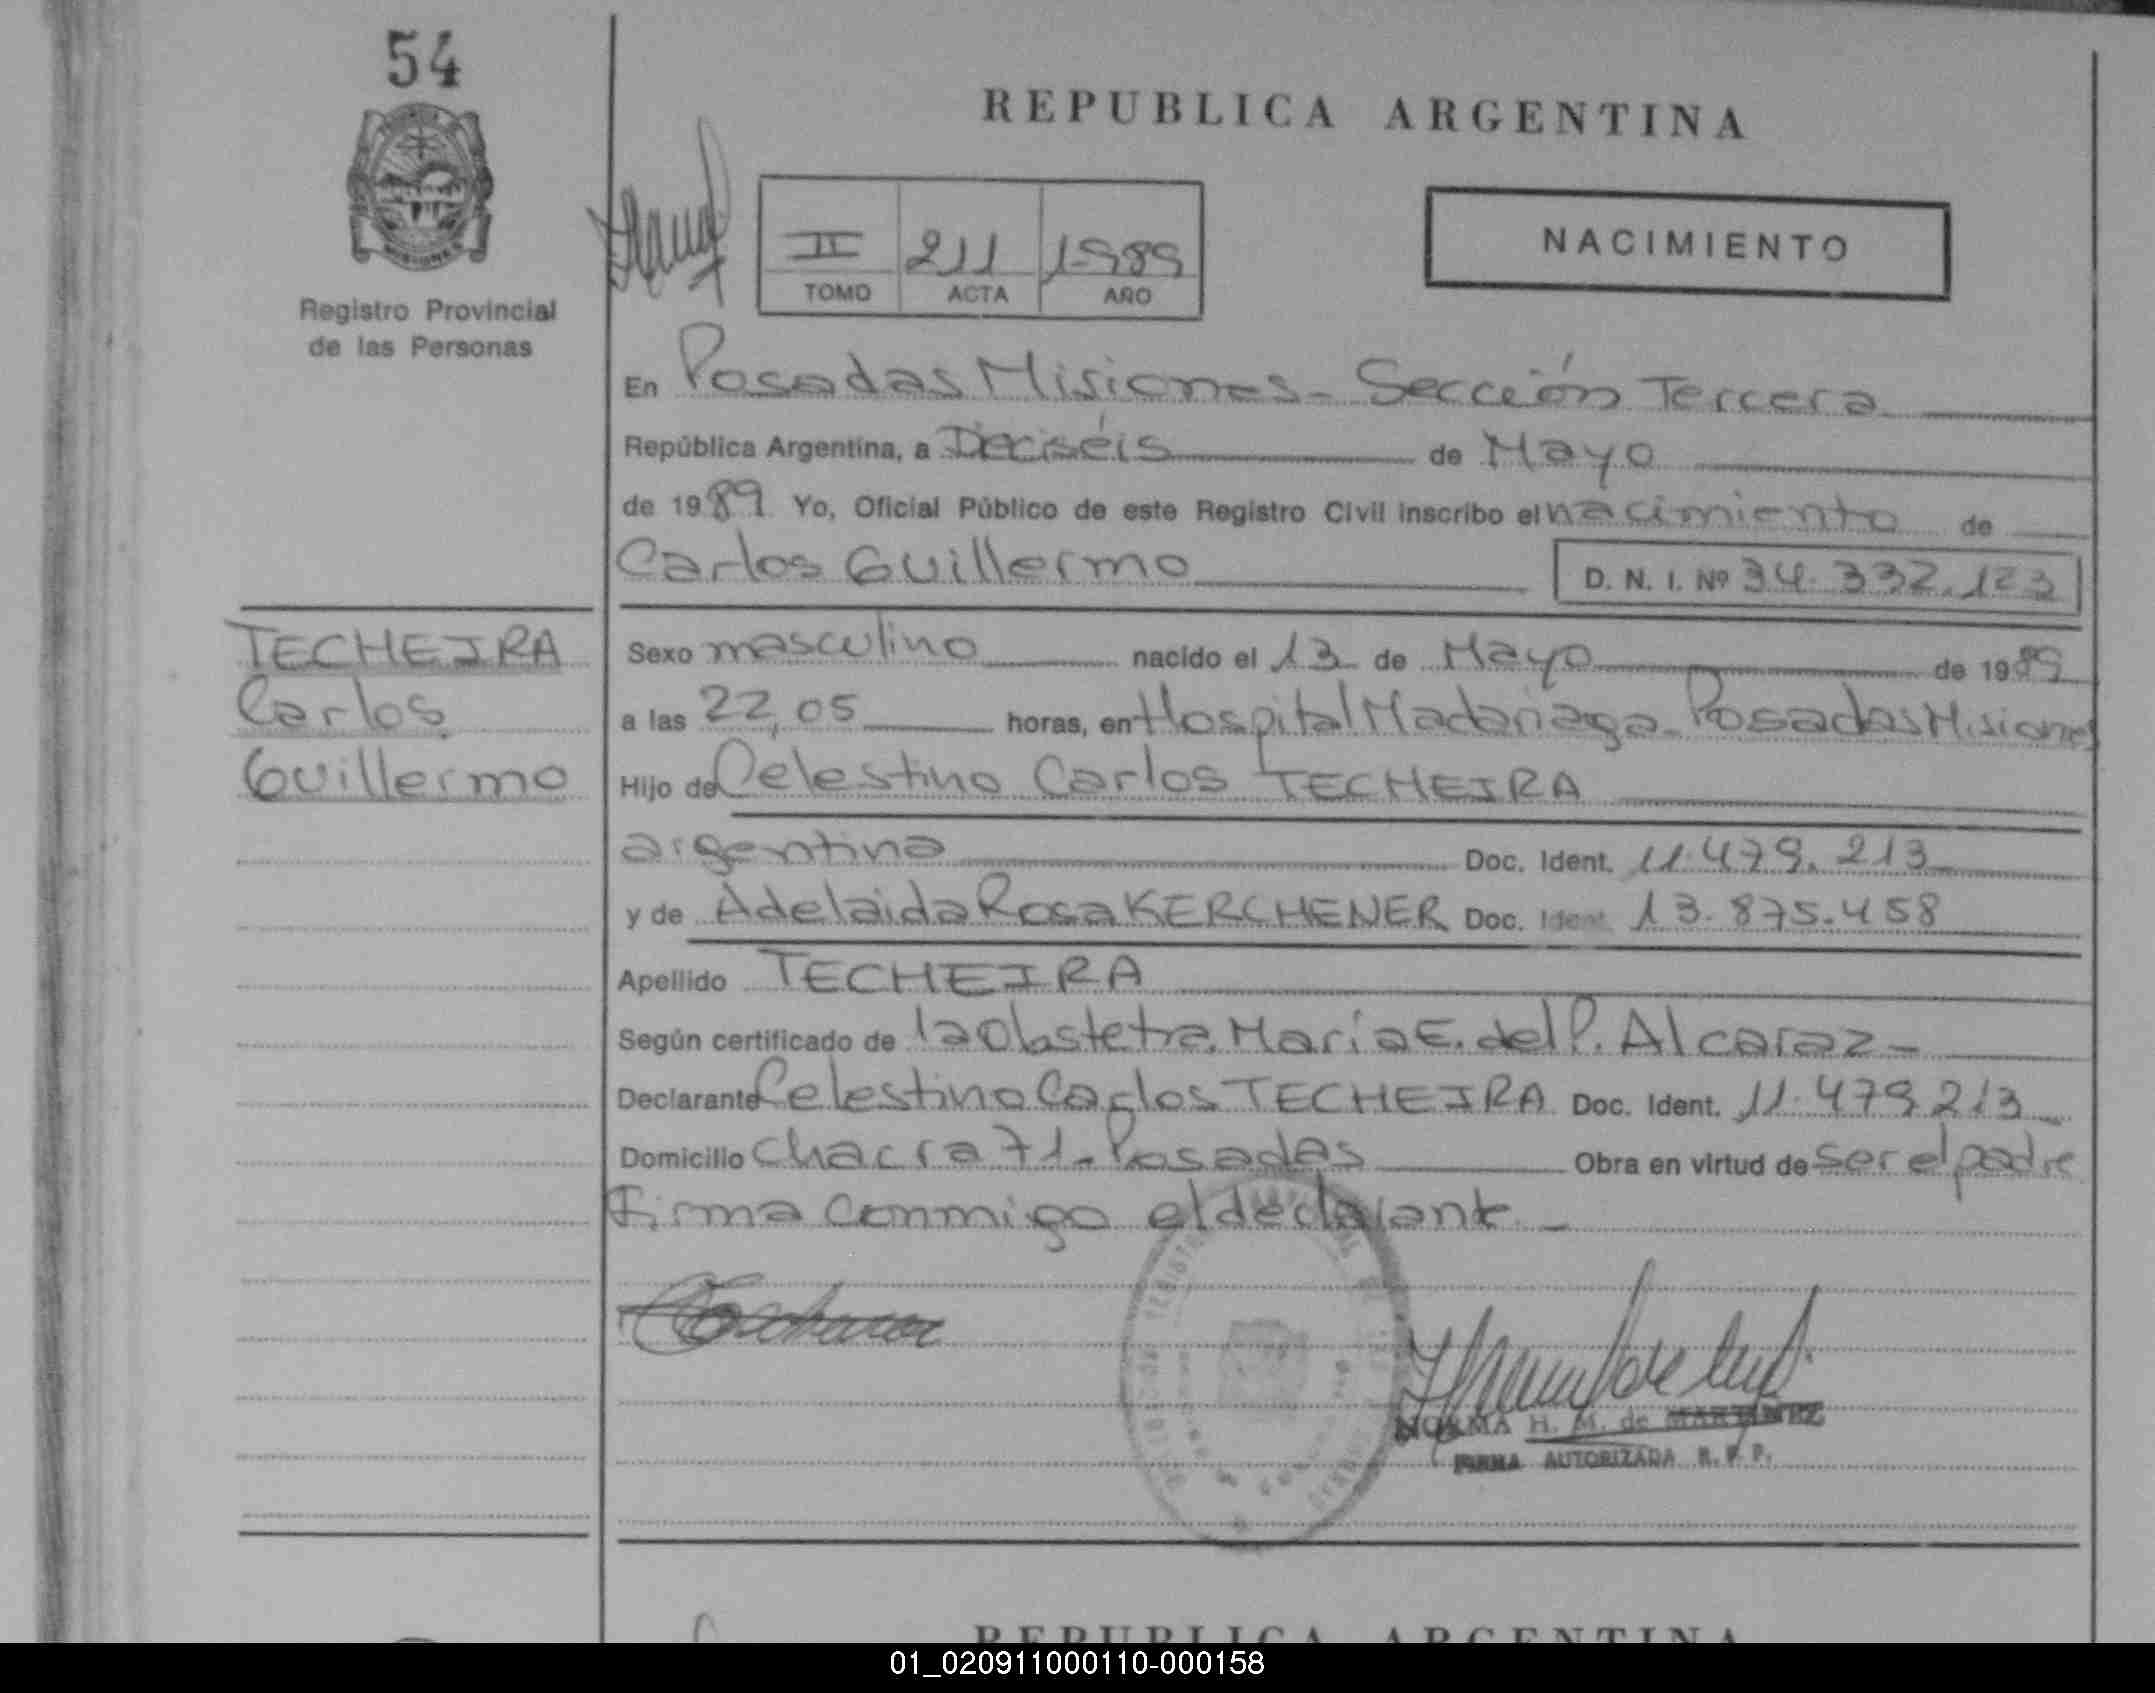 54
REPUBLICA ARGENTINA
II 211 1989
TOMO ACTA AÑO
NACIMIENTO
Registro Provincial
de las Personas
En Posadas Misiones - Sección Tercera
República Argentina, a Dieciséis de Mayo
de 1989 Yo, Oficial Público de este Registro Civil inscribo el nacimiento de
Carlos Guillermo D. N. I. Nº 34.332.123
TECHEIRA
Carlos
Guillermo
Sexo masculino nacido el 13 de Mayo de 1989
a las 22,05 horas, en Hospital Madariaga - Posadas Misiones
Hijo de Celestino Carlos TECHEIRA
argentina Doc. Ident. 11.479.213
y de Adelaida Rosa KERCHENER Doc. Ident. 13.875.458
Apellido TECHEIRA
Según certificado de la Obstetra. María E. del P. Alcaraz -
Declarante Celestino Carlos TECHEIRA Doc. Ident. 11.479.213
Domicilio Chacra 71 - Posadas Obra en virtud de ser el padre
Firma conmigo el declarante -
NORMA H. M. de MARTINEZ
FIRMA AUTORIZADA R. P. P.
REPUBLICA ARGENTINA
01_020911000110-000158